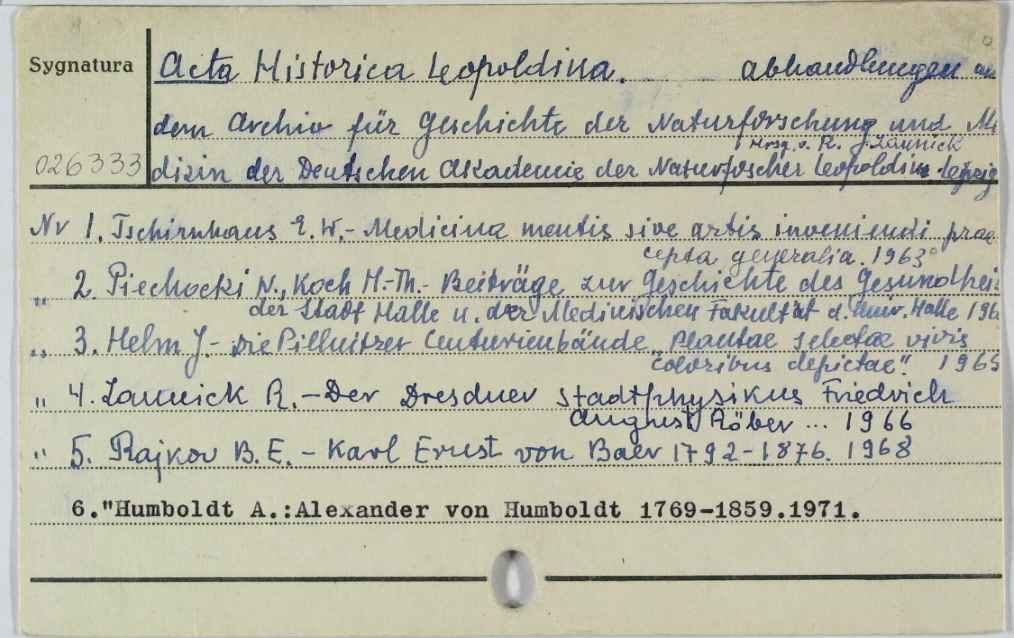 Sygnatura
Acta Historica Leopoldina. Abhandlungen au
dem Archiv für Geschichte der Naturforschung und Me
Hrsg. v. R. Zaunick
026333
dizin der Deutschen Akademie der Naturforscher Leopoldina. Leipzig
Nr 1. Tschirnhaus E. W. - Medicina mentis sive artis inveniendi prae
cepta generalia. 1963
" 2. Piechocki W., Koch H.-Th. - Beiträge zur Geschichte des Gesundhei
der Stadt Halle u. der Medizinischen Fakultät d. Univ. Halle 196
" 3. Helm J. - Die Pillnitzer Centurienbände "Plantae selectae vivis
coloribus depictae". 1965
" 4. Zaunick R. - Der Dresdner Stadtphysikus Friedrich
August Röber ... 1966
" 5. Rajkov B. E. - Karl Ernst von Baer 1792-1876. 1968
6."Humboldt A.:Alexander von Humboldt 1769-1859.1971.